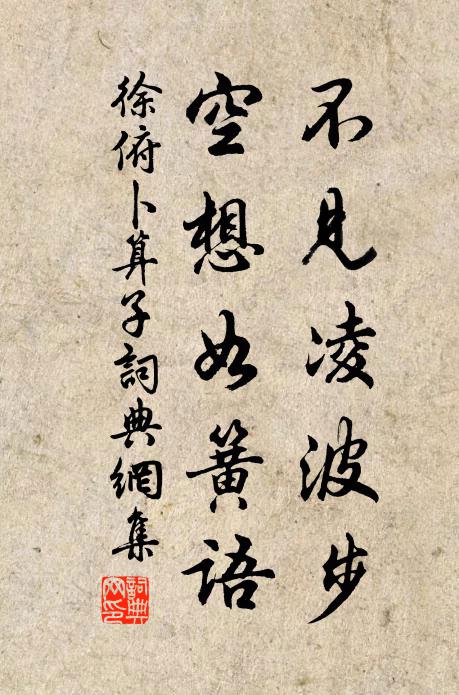 不見凌波步
空想如簧語
徐俯卜算子詞典網集
詞典網印